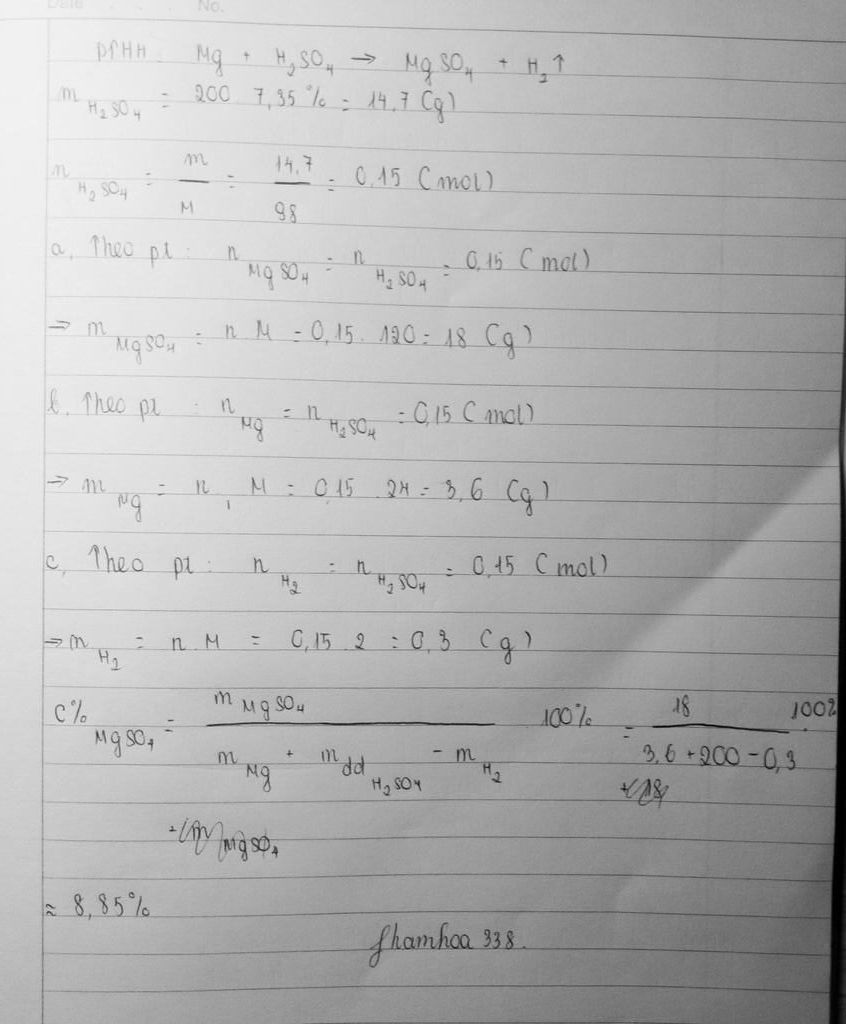 Date No.
PTHH: Mg + H₂SO₄ → MgSO₄ + H₂↑
m H₂SO₄ = 200 . 7,35% = 14,7 (g)
n H₂SO₄ = m/M = 14,7/98 = 0,15 (mol)
a, Theo pt: n MgSO₄ = n H₂SO₄ = 0,15 (mol)
⇒ m MgSO₄ = n . M = 0,15 . 120 = 18 (g)
b. Theo pt: n Mg = n H₂SO₄ = 0,15 (mol)
→ m Mg = n . M = 0,15 . 24 = 3,6 (g)
c, Theo pt: n H₂ = n H₂SO₄ = 0,15 (mol)
⇒ m H₂ = n . M = 0,15 . 2 = 0,3 (g)
C% MgSO₄ = m MgSO₄ / (m Mg + m dd H₂SO₄ - m H₂) . 100% = 18 / (3,6 + 200 - 0,3) . 100%
MgSO₄
≈ 8,85%
fhamhoa 338.